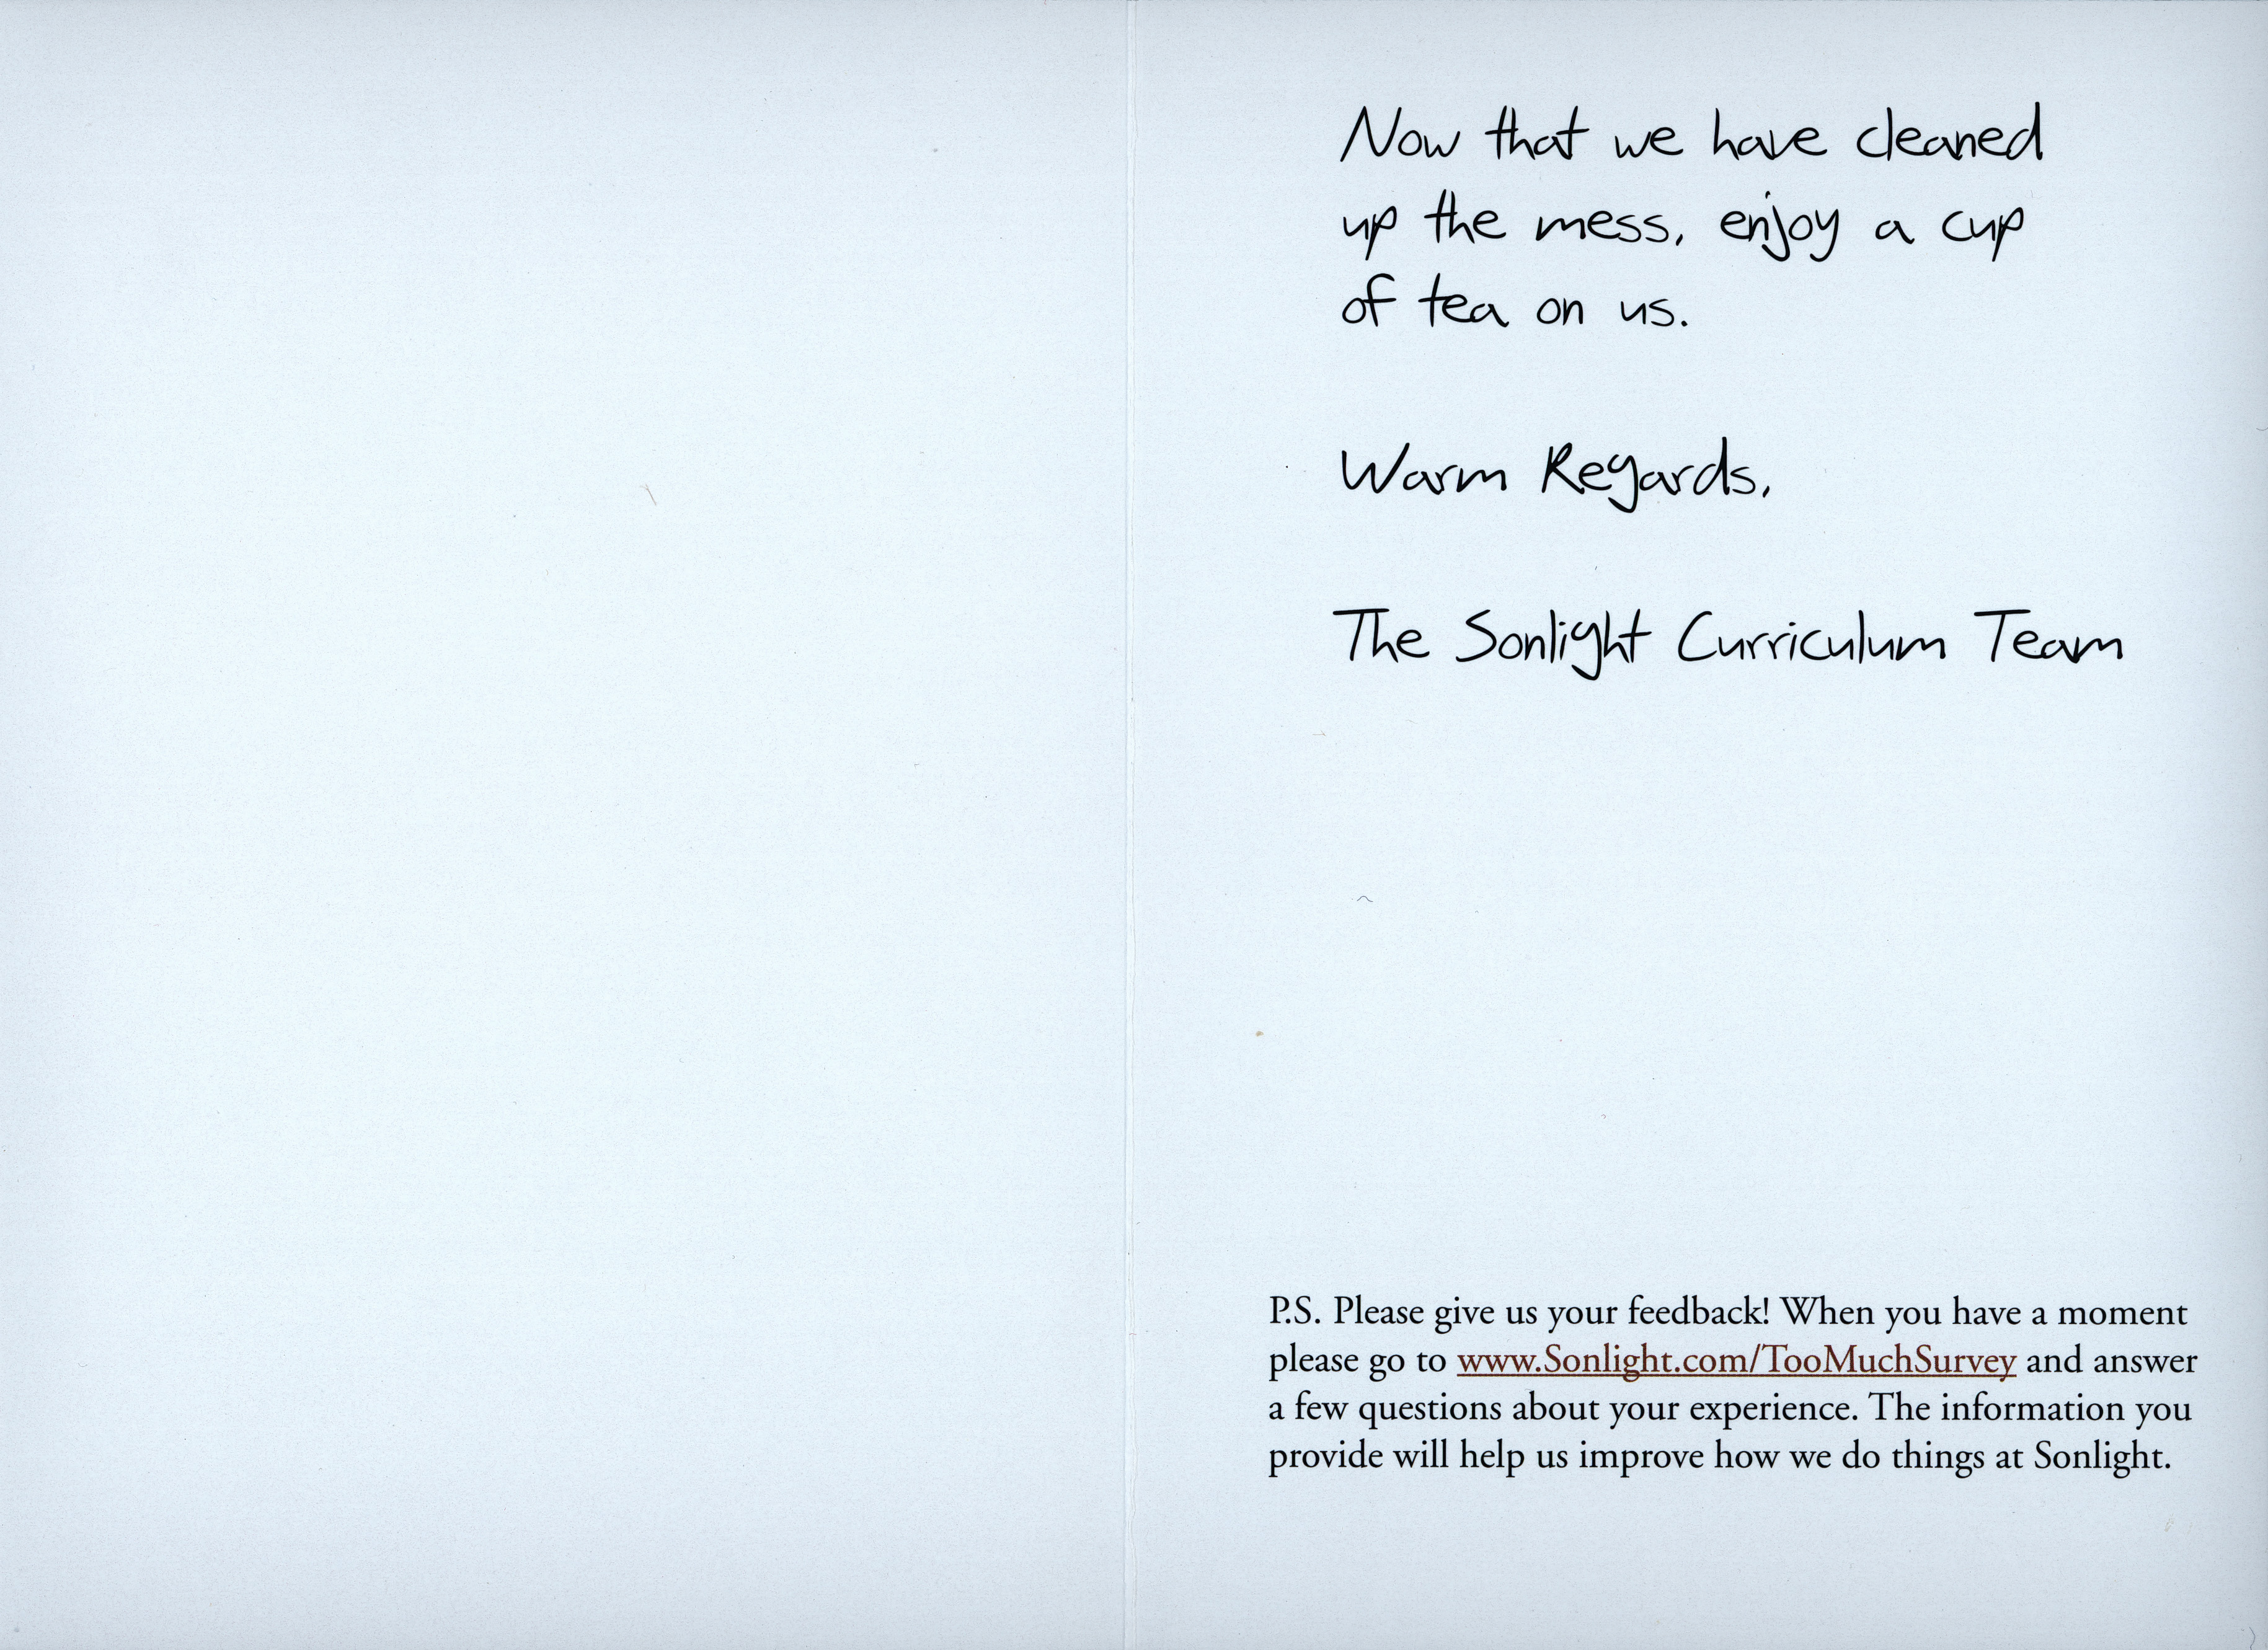 Now that we have cleaned
up the mess, enjoy a cup
of tea on us.
Warm Regards,
The Sonlight Curriculum Team
P.S. Please give us your feedback! When you have a moment
please go to www.Sonlight.com/TooMuchSurvey and answer
a few questions about your experience. The information you
provide will help us improve how we do things at Sonlight.